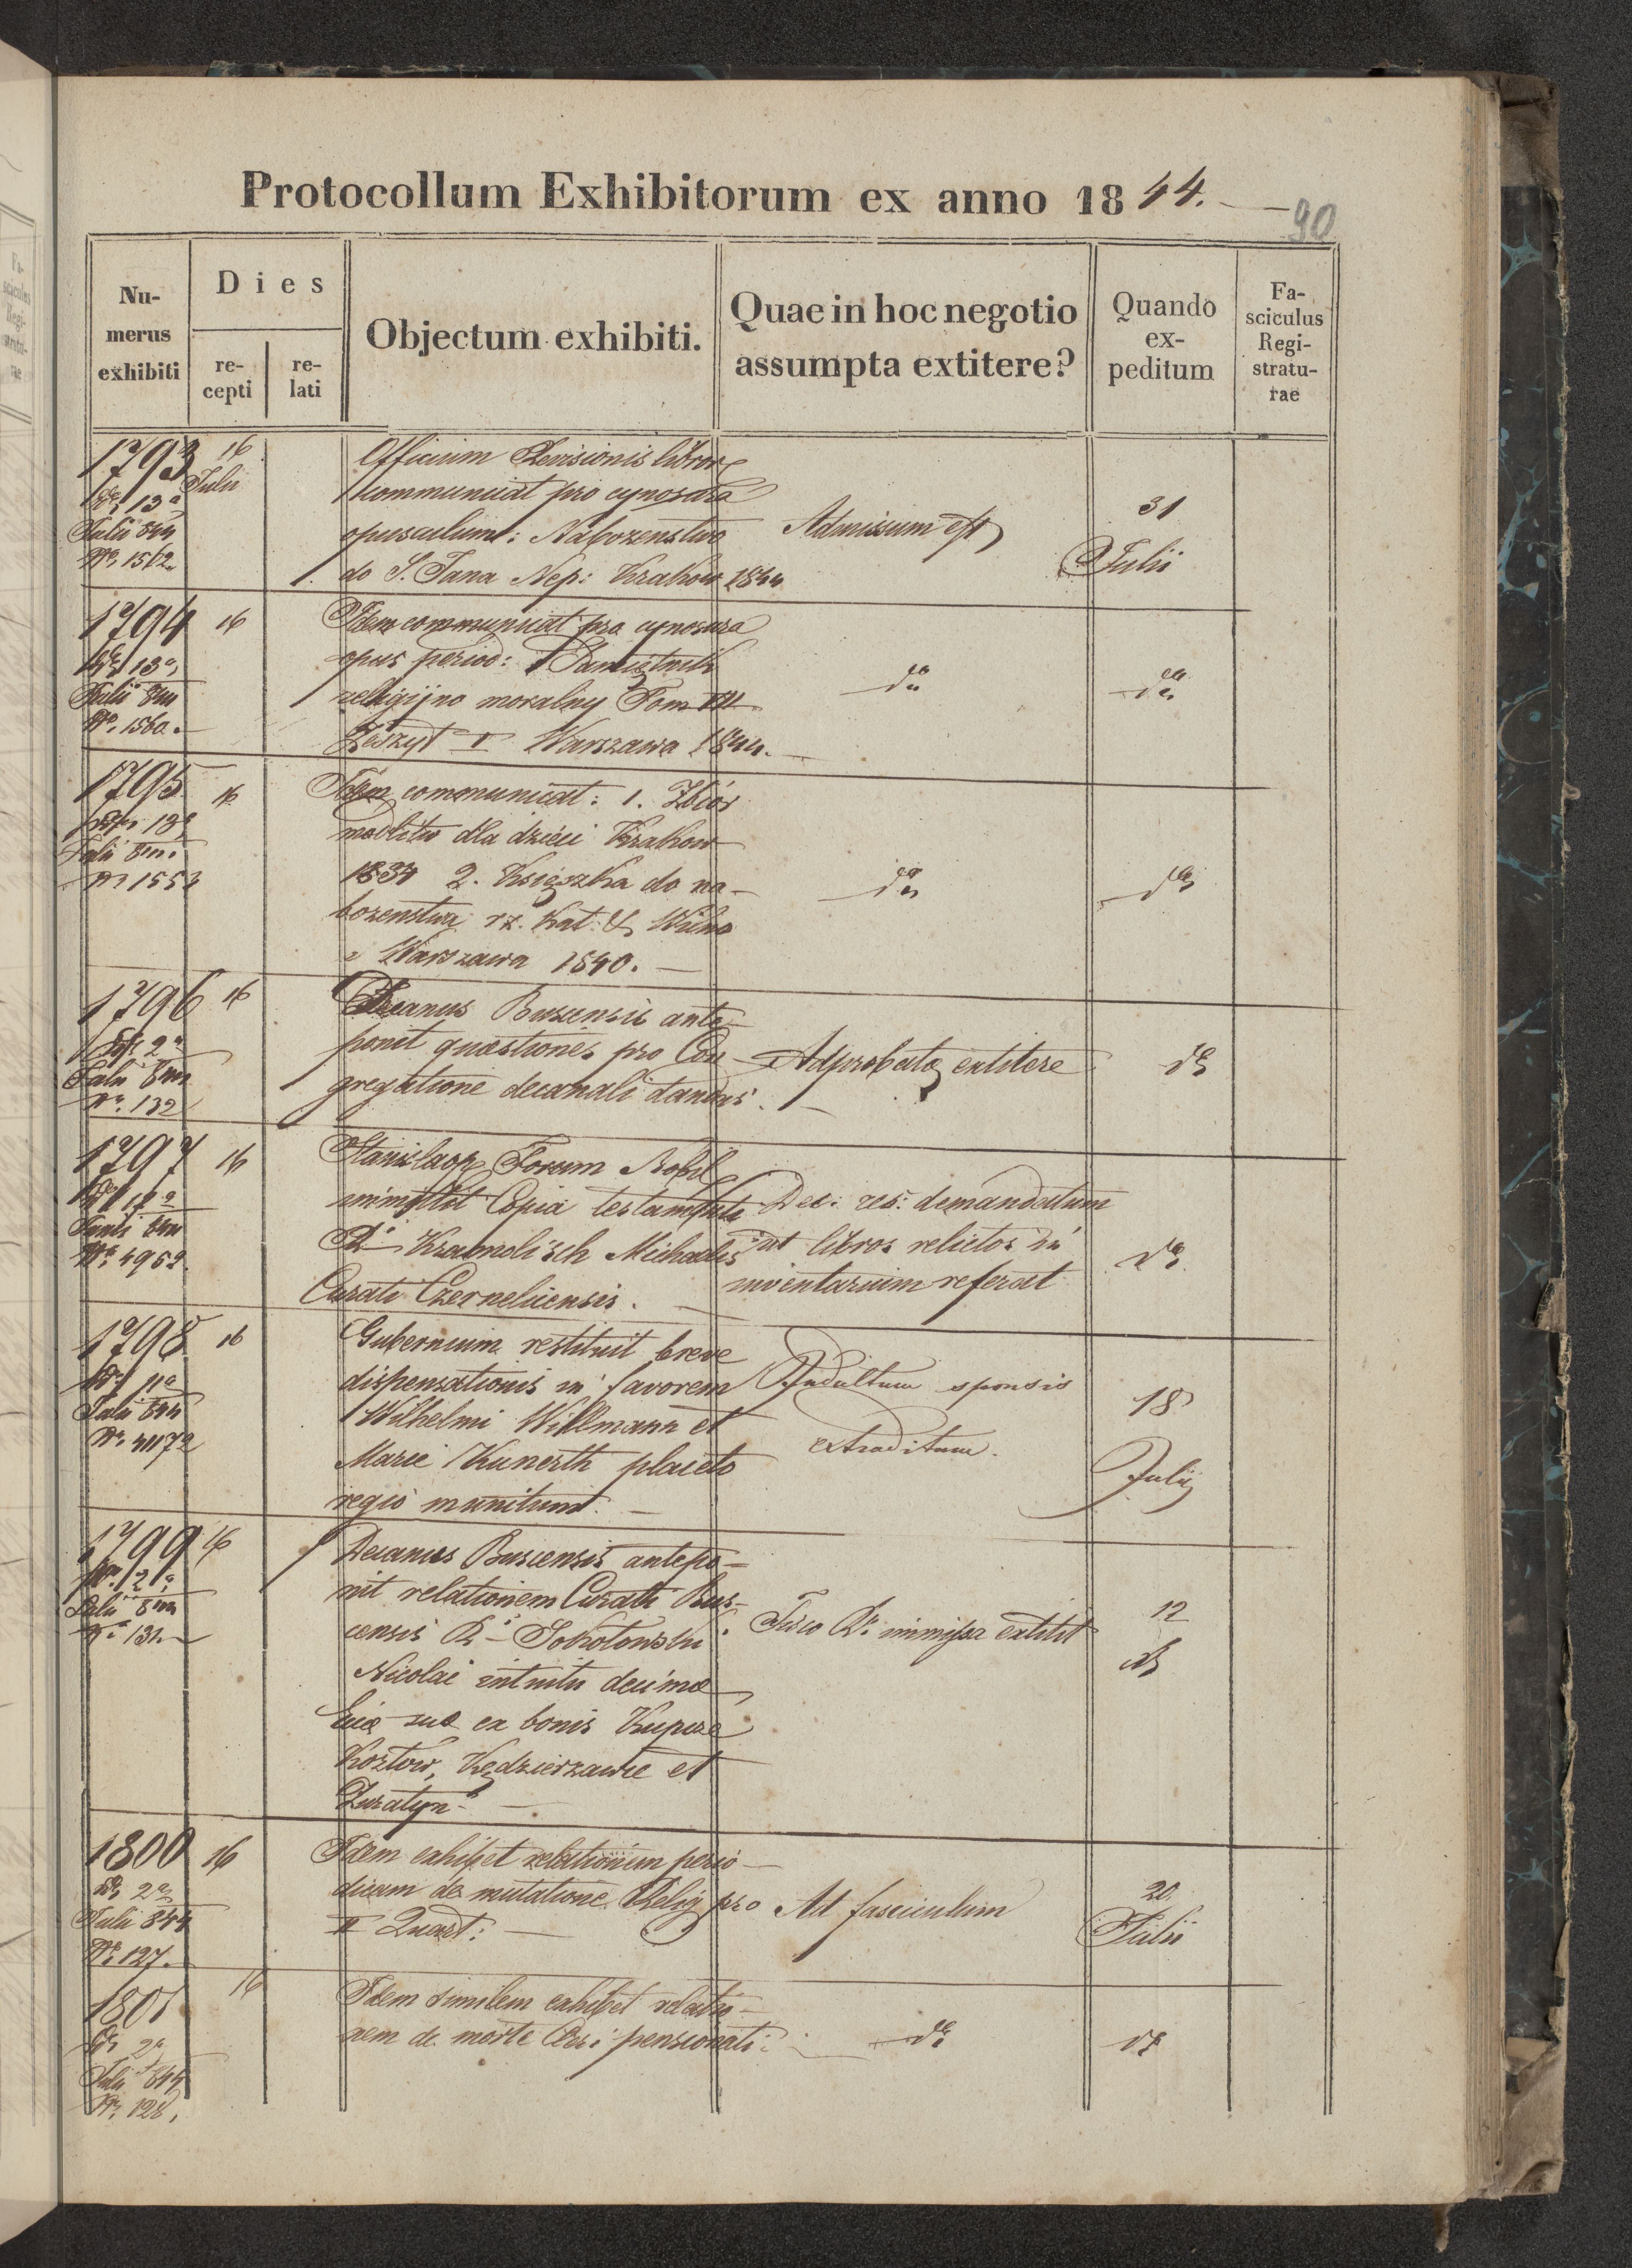 Protocollum Exhibitorum ex anno 1844.
90
Nu-
merus
exhibiti
Dies
re-
cepti
re-
lati
Objectum exhibiti.
Quae in hoc negotio
assumpta extitere?
Quando
ex-
peditum
Fa-
sciculus
Regi-
stratu-
rae
1793
16
Julii
13a
Julii 844
No 1562
Officium Revisionis libror
communicat pro cynosura
opusculum: Nabozenstwo
do S. Jana Nep: Krakow 1844
Admissum est
31
Julii
1794
16
13a
Julii 844
No. 1560.
Idem communicat pro cynosura
opus period: Pamiętnik
religijno moralny Tom VII
Zeszyt I Warszawa 1844.
do
do
1795
16
13a
Julii 844
No 1553
Idem communicat: 1. Zbiór
modlitw dla dzieci Krakow
1834 2. Książka do na-
bozenstwa rz. Kat: Wilno
Warszawa 1840.
do
do
1796
16
2a
Julii 844
No. 132
Decanus Buscensis ante-
ponit quæstiones pro Con-
gregatione decanali dandas.
Adprobatæ extitere
do
1797
16
No. 4952.
Stanislaop Forum Nobil
Copia testamenti
Michaelis
Curati Czerneliciensis.
Dec: res: demandatum
ut libros relictos in
inventarium referat
do
1798
16
11a
Julii 844
Gubernium restituit breve
dispensationis in favorem
Wilhelmi Willmann et
Marie Kunerth placeto
regio munitum.
Indultum sponsis
extraditum.
18
Julii
1799
16
2a
Julii 844
No 131.
Decanus Buscensis antepo-
nit relationem Curati Bus-
censis Sokołowski
Nicolai intuitu decimæ
suæ ex bonis Kupcze
Kozłow, Kędzierzawce et
Zuratyn
Fisco immissa extitit
12
do
1800
16
2a
Julii 844
No. 127.
Idem exhibet relationem perio-
dicam de mutatione Relig pro
II Quart:
Ad fasciculum
20
Julii
1801
16
2a
Julii 844
No. 128.
Idem similem exhibet relatio-
nem de morte pensionati:
do
do